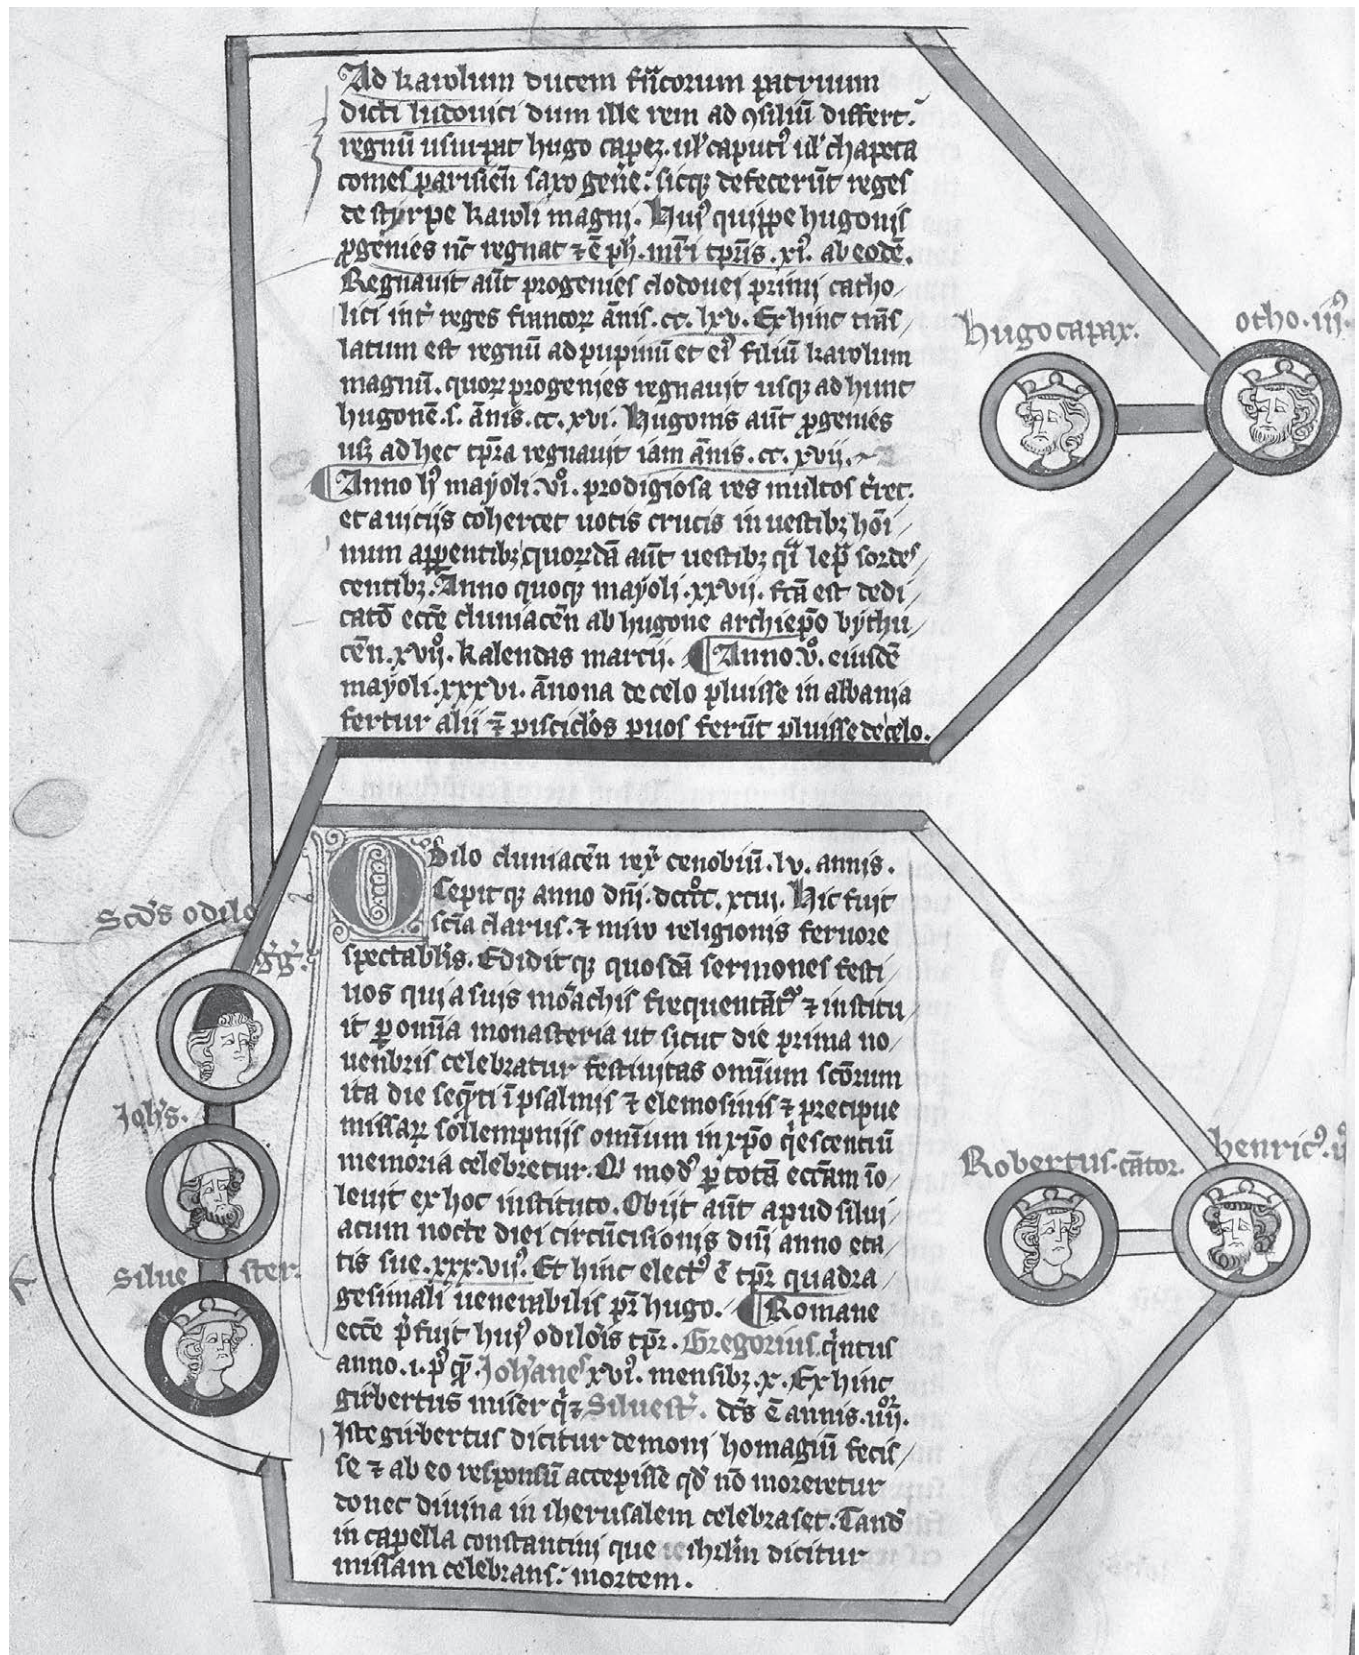 Ad karolum ducem fr̄corum patruum
dicti ludouici dum ille rem ad ꝯsiliū differt.
regnū usurpat hugo capez. ul' caputi' ul' chapeta
comes parisieñ saxo gen̄e: sicqꝫ defecerūt reges
de styrpe karoli magni. Hui' quippe hugonis
ꝓgenies nc̄ regnat ⁊ ē ph'. nr̄i tp̄ris .xi'. ab eodē.
Regnauit aūt progenies clodouei primi catho/
lici int' reges francoꝝ ānis .cc. lxv. Ex hinc trās/
latum est regnū ad pupinū et ei' filiū karolum
magnū. quoꝝ progenies regnauit usqꝫ ad hunc
hugonē .s. ānis .cc. xvi. Hugonis aūt ꝓgenies
usqꝫ ad hec tp̄ra regnauit iam ānis .cc. xvii.
Anno h' mayoli .vi'. prodigiosa res multos t'ret.
et a uiciis cohercet notis crucis in uestibꝫ hoī/
num apparentibꝫ quorūdā aūt uestibꝫ q̄i lep̄ sordes/
centibꝫ. Anno quoqꝫ mayoli .xxvij. fc̄a est dedi/
catō ecc̄e cluniacēn ab hugone archiep̄o bythu/
cēn .xvij'. kalendas marcij. Anno .v'. eiusdē
mayoli .xxxvi. ānona de celo pluisse in albania
fertur alij ⁊ pisciclōs puos ferūt pluisse de celo.
hugo capax.
otho .iij'.
Odilo cluniacēn rex' cenobiū .lv. annis.
Cepitqꝫ anno dn̄i .dcccc. xciij. Hic fuit
scīa clarus. ⁊ miro religionis feruore
spectablis. Ediditqꝫ quosdā sermones festi/
uos qui a suis mōachis frequentāt' ⁊ institu/
it ꝑ omīa monasteria ut sicut die prima no/
uenbris celebratur festiuitas omīum sc̄orum
ita die seq̄nti ī psalmis ⁊ elemosinis ⁊ precipue
missaꝝ sollempnijs omīum in xp̄o q'escentiū
memoria celebretur. Q' mod' ꝑ totā ecc̄am īo/
leuit ex hoc instituto. Obijt aūt apud silui/
acum nocte diei circūcisionis dn̄i anno eta/
tis sue .xxx.vij'. Et hinc elect' ē tp̄r quadra/
gesimali uenerabilis pr̄ hugo. Romane
ecc̄e p'fuit hui' odilōis tp̄r. Gregorius q'ntus
anno .i. p' q̄ Joh'anes xvi'. mensibꝫ .x. Ex hinc
girbertus miser q' ⁊ Siluest'. dc̄s ē annis .iiij'.
Iste girbertus dicitur demoni homagiū fecis/
se ⁊ ab eo responsū accepisse qd' nō moreretur
donec diuina in iherusalem celebraset. Tand'
in capella constantini que ihrlm̄ dicitur
missam celebrans: mortem.
Sc̄ds odilo
g'g'.
Joh's.
Silue ster.
Robertus. cātor.
henric' .ij'